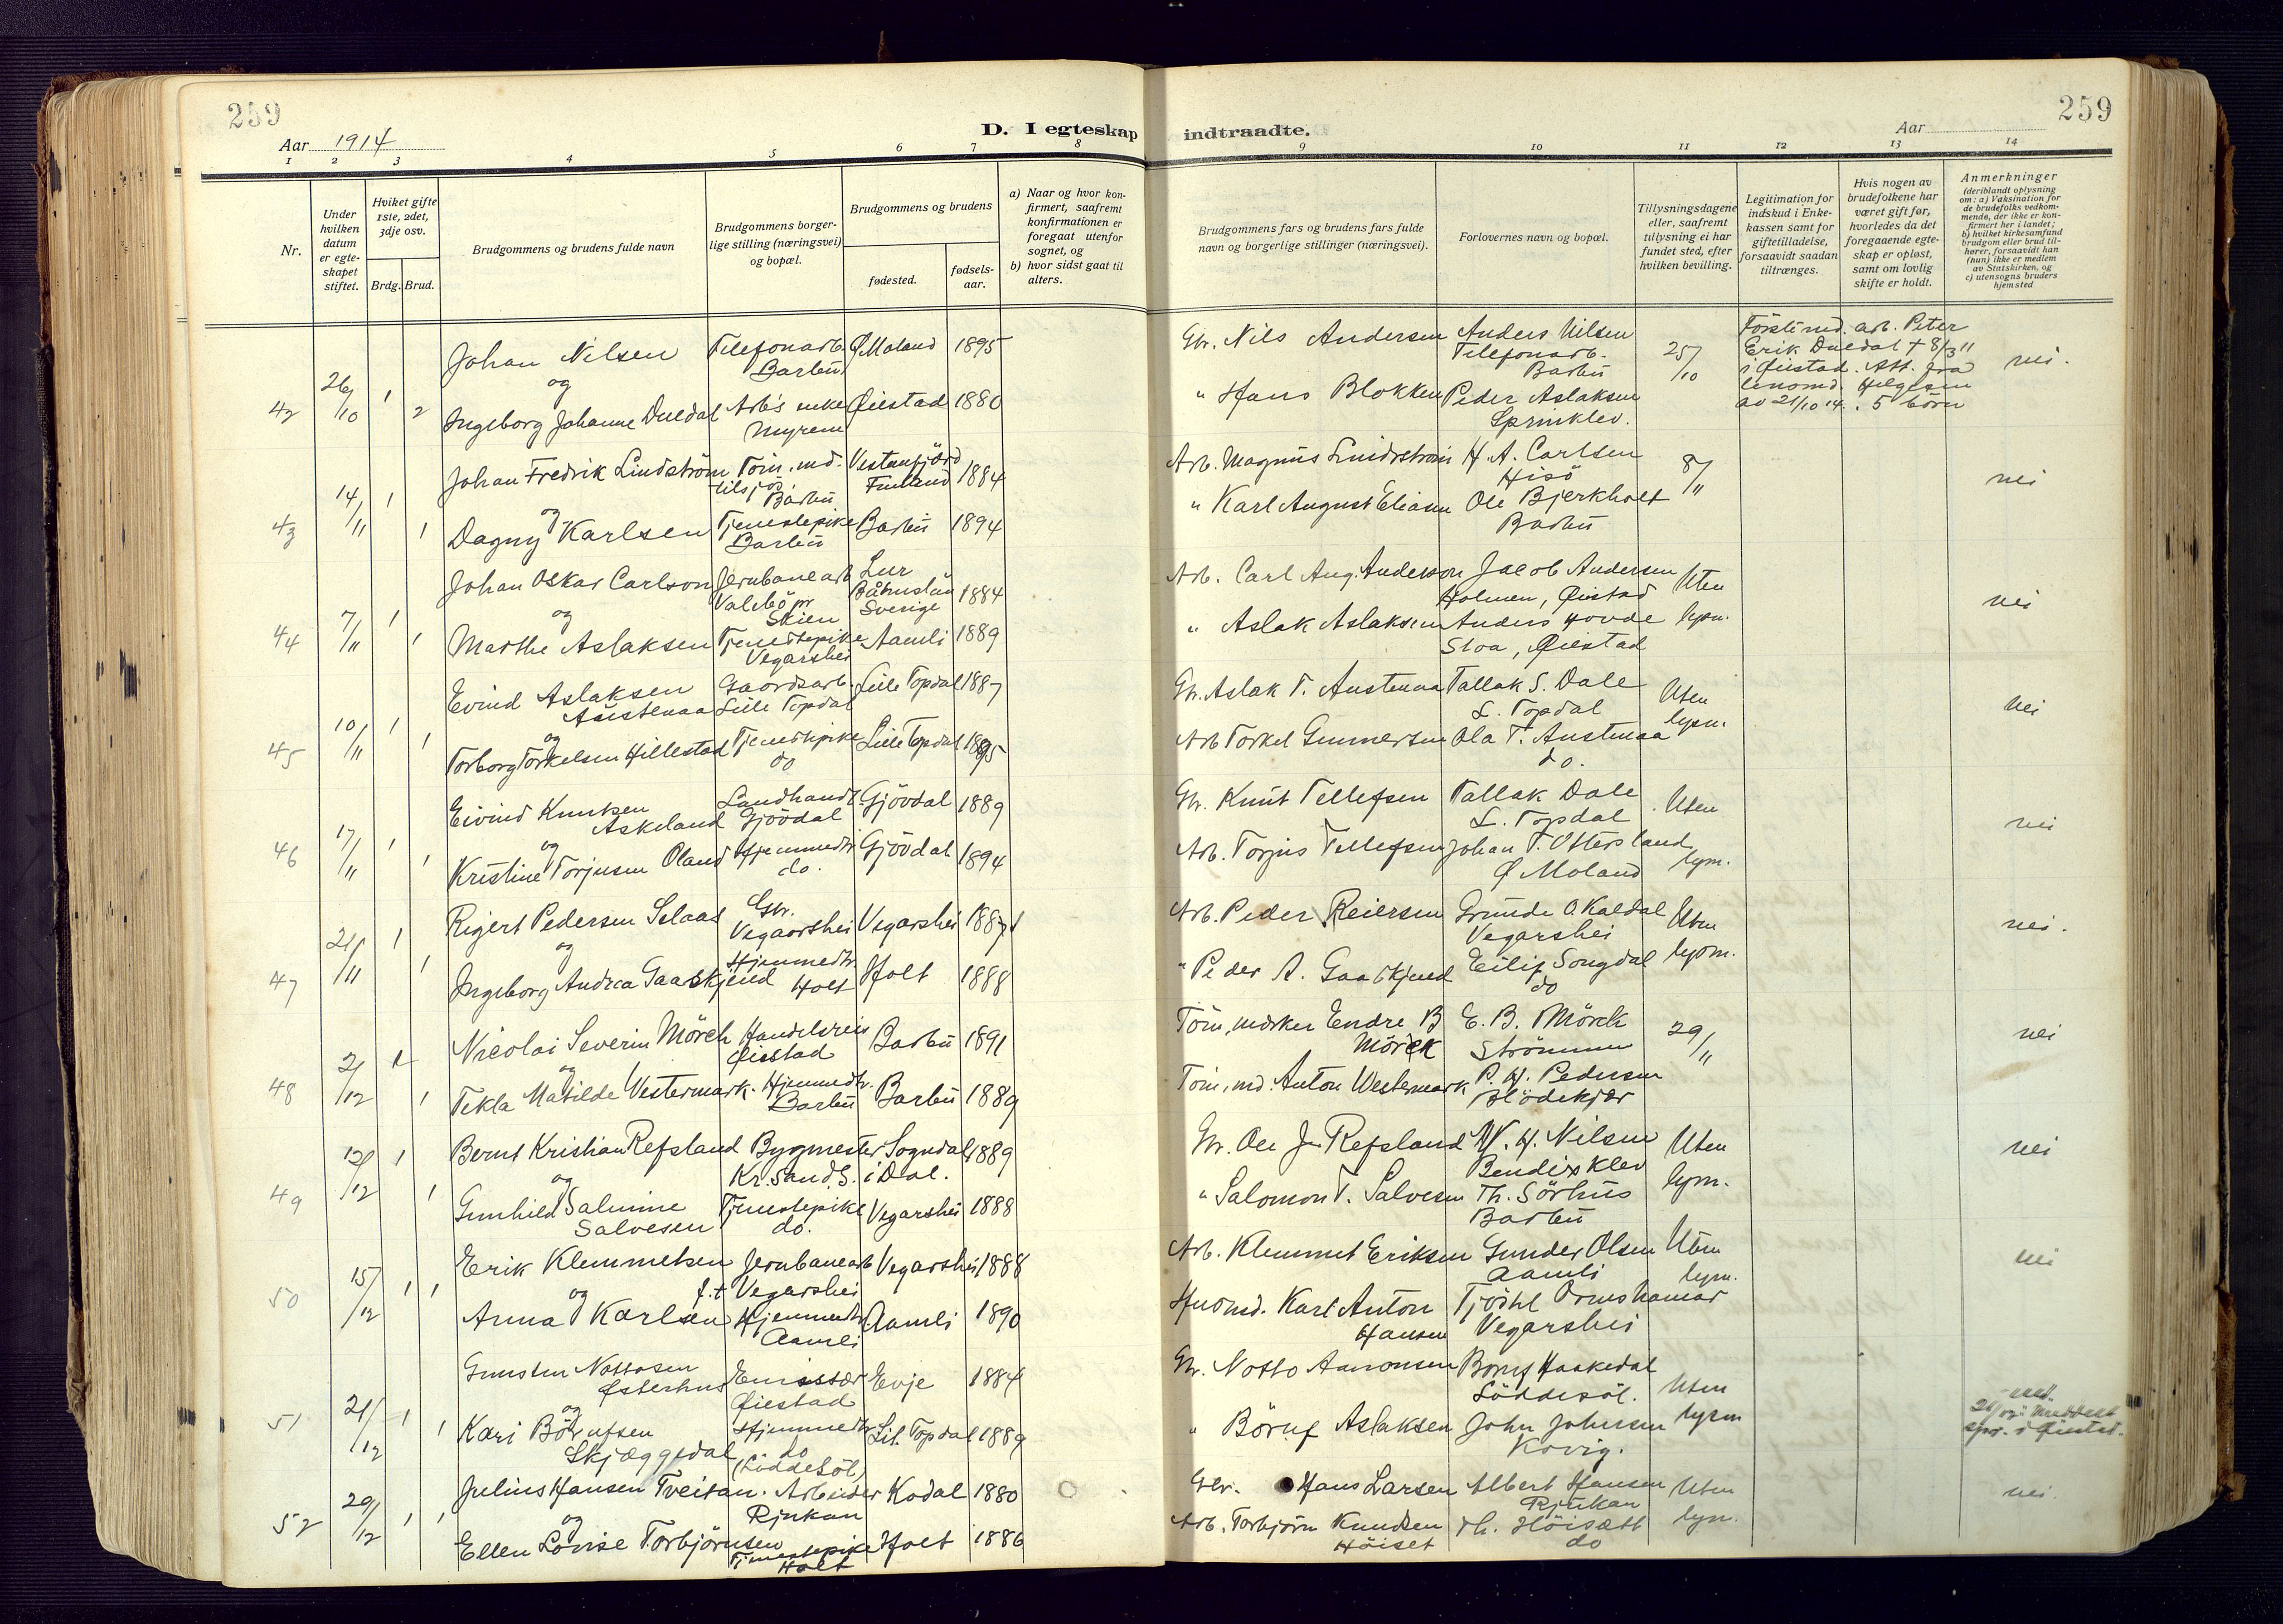 259
259
Aar 1914
D. I egteskap indtraadte.
Aar
1 2 3 4 5 6 7 8 9 10 11 12 13 14
Nr.
Under hvilken datum er egteskapet stiftet.
Hvilket gifte 1ste, 2det, 3dje osv.
Brdg. Brud.
Brudgommens og brudens fulde navn
Brudgommens borgerlige stilling (næringsvei) og bopæl.
Brudgommens og brudens
fødested.
fødselsaar.
a) Naar og hvor konfirmert, saafremt konfirmationen er foregaat utenfor sognet, og
b) hvor sidst gaat til alters.
Brudgommens fars og brudens fars fulde navn og borgerlige stillinger (næringsvei).
Forlovernes navn og bopæl.
Tillysningsdagene eller, saafremt tillysning ei har fundet sted, efter hvilken bevilling.
Legitimation for indskud i Enkekassen samt for giftetilladelse, forsaavidt saadan tiltrænges.
Hvis nogen av brudefolkene har været gift før, hvorledes da det foregaaende egteskap er opløst, samt om lovlig skifte er holdt.
Anmerkninger
(deriblandt oplysning om: a) Vaksination for de brudefolks vedkommende, der ikke er konfirmert her i landet; b) hvilket kirkesamfund brudgom eller brud tilhører, forsaavidt han (hun) ikke er medlem av Statskirken, og c) utensogns bruders hjemsted
42 26/10 1 2
Johan Nilsen Telefonarb. Barbu Ø Moland 1895
og
Ingeborg Johanne Duedal Arb's enke Myrene Øiestad 1880
Gbr. Nils Andersen
" Hans Blokken
Anders Nilsen Telefonarb. Barbu
Peder Aslaksen Sprinklev.
25/10
Förste md. arb. Peter
Erik Duedal † 8/3 11
i Øiestad. Att. fra
lensmd. Helgesen
av 21/10 14. 5 börn
nei.
43 14/11 1 1
Johan Fredrik Lindström Töm.md. tilsjös Barbu Vestanfjärd Finland 1884
og
Dagny Karlsen Tjenestepike Barbu Barbu 1894
Arb. Magnus Lindström
" Karl August Eliasen
H. A. Carlsen Hisö
Ole Bjerkholt Barbu
8/11
nei
44 7/11 1 1
Johan Oskar Carlson Jernbanearb Valebö pr Skien Lur Båhuslän Sverige 1884
og
Marthe Aslaksen Tjenestepike Vegarshei Aamli 1889
Arb. Carl Aug. Andersson
" Aslak Aslaksen
Jacob Andersen Holmen, Øiestad
Anders Hovde Stoa, Øiestad
Uten lysn.
nei
45 10/11 1 1
Evind Aslaksen Austenaa Gaardsarb. Lille Topdal Lille Topdal 1887
og
Torborg Torkelsen Hillestad Tjenestepike do Lille Topdal 1895
Gbr. Aslak T. Austenaa
Arb Torkel Gunnersen
Tallak S. Dale L. Topdal
Ola T. Austenaa do.
Uten lysn.
nei
46 17/11 1 1
Eivind Knutsen Askeland Landhandl. Gjövdal Gjövdal 1889
og
Kristine Torjusen Oland Hjemmedtr do. Gjövdal 1894
Gbr. Knut Tellefsen
Arb. Torjus Tellefsen
Tallak Dale L. Topdal
Johan T. Ottersland Ø Moland
Uten lysn.
nei
47 21/11 1 1
Reiert Pedersen Selaas Gbr. Vegaarshei Vegarshei 1887
og
Ingeborg Andrea Gaaskjend Hjemmedtr. Holt Holt 1888
Arb. Peder Reiersen
" Peder A. Gaaskjend
Grunde O. Kaldal Vegarshei
Eilif Songdal do
Uten lysn.
nei.
48 2/12 1 1
Nicolai Severin Mörch Handelsreis Øiestad Barbu 1891
og
Tekla Matilde Vestermark. Hjemmedtr. Barbu Barbu 1889
Töm.mærker Endre B Mörck
Töm.md. Anton Westermark
E. B. Mörck Strömmen
P. H. Pedersen Blödekjær
29/11
nei
49 12/12 1 1
Bernt Kristian Refsland Bygmester Kr.sand S. Sogndal i Dal. 1889
og
Gunhild Salmine Salvesen Tjenestepike do. Vegarshei 1888
Gbr. Ole J. Refsland
" Salomon T. Salvesen
N. H. Nilsen Bendixklev
Th. Sörhus Barbu
Uten lysn.
nei
50 15/12 1 1
Erik Klemmetsen Jernbanearb f.t Vegarshei Vegarshei 1888
og
Anna Karlsen Hjemmedtr Aamli Aamli 1890
Arb. Klemmet Eriksen
Husmd. Karl Anton Hansen
Gunder Olsen Aamli
Tjöstel Ormshamar Vegarshei
Uten lysn.
nei
51 21/12 1 1
Gunsten Nottosen Østerhus Emissær Øiestad Evje 1884
og
Kari Börufsen Skjæggedal Hjemmedtr do (Löddesöl) Lit. Topdal 1889
Gbr. Notto Aanonsen
" Böruf Aslaksen
Böruf Haakedal Löddesöl.
John Johnsen Kovig.
Uten lysn
52 29/12 1 1
Julius Hansen Tveitan. Arbeider Rjukan Kodal 1880
og
Ellen Lovise Torbjörnsen Tjenestepike Holt Holt 1886
Gbr. Hans Larsen
Arb. Torbjörn Knudsen Höiset
Albert Hansen Rjukan
Th. Höisætt do
Uten lysn.
nei.